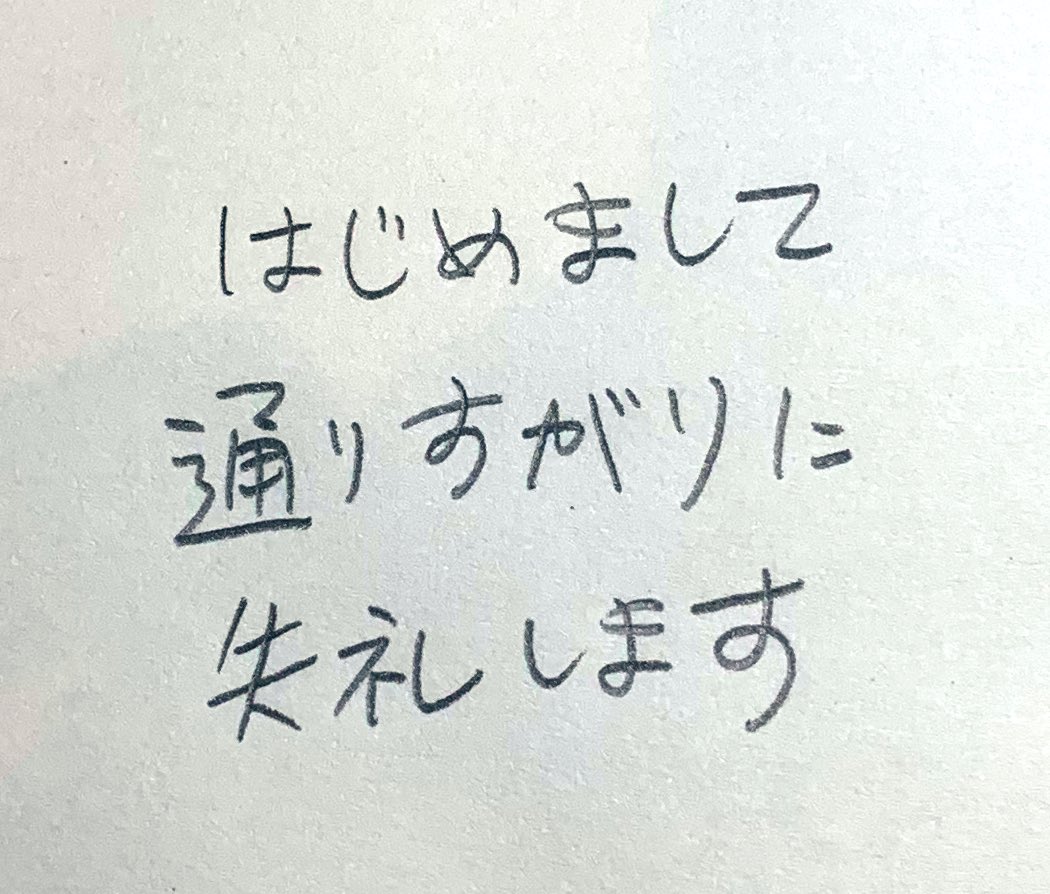 はじめまして
通りすがりに
失礼します